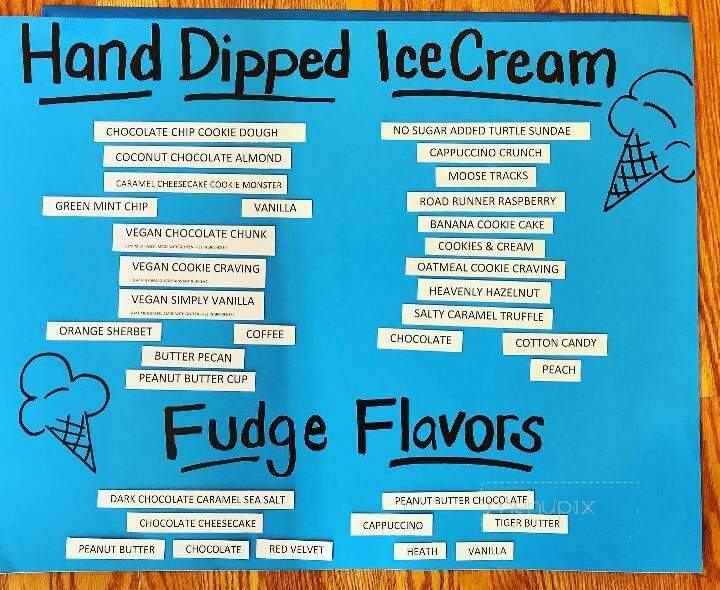 Hand Dipped Ice Cream
CHOCOLATE CHIP COOKIE DOUGH
COCONUT CHOCOLATE ALMOND
CARAMEL CHEESECAKE COOKIE MONSTER
GREEN MINT CHIP
VANILLA
VEGAN CHOCOLATE CHUNK
VEGAN COOKIE CRAVING
VEGAN SIMPLY VANILLA
ORANGE SHERBET
COFFEE
BUTTER PECAN
PEANUT BUTTER CUP
NO SUGAR ADDED TURTLE SUNDAE
CAPPUCCINO CRUNCH
MOOSE TRACKS
ROAD RUNNER RASPBERRY
BANANA COOKIE CAKE
COOKIES & CREAM
OATMEAL COOKIE CRAVING
HEAVENLY HAZELNUT
SALTY CARAMEL TRUFFLE
CHOCOLATE
COTTON CANDY
PEACH
Fudge Flavors
DARK CHOCOLATE CARAMEL SEA SALT
CHOCOLATE CHEESECAKE
PEANUT BUTTER
CHOCOLATE
RED VELVET
PEANUT BUTTER CHOCOLATE
CAPPUCCINO
TIGER BUTTER
HEATH
VANILLA
menupix